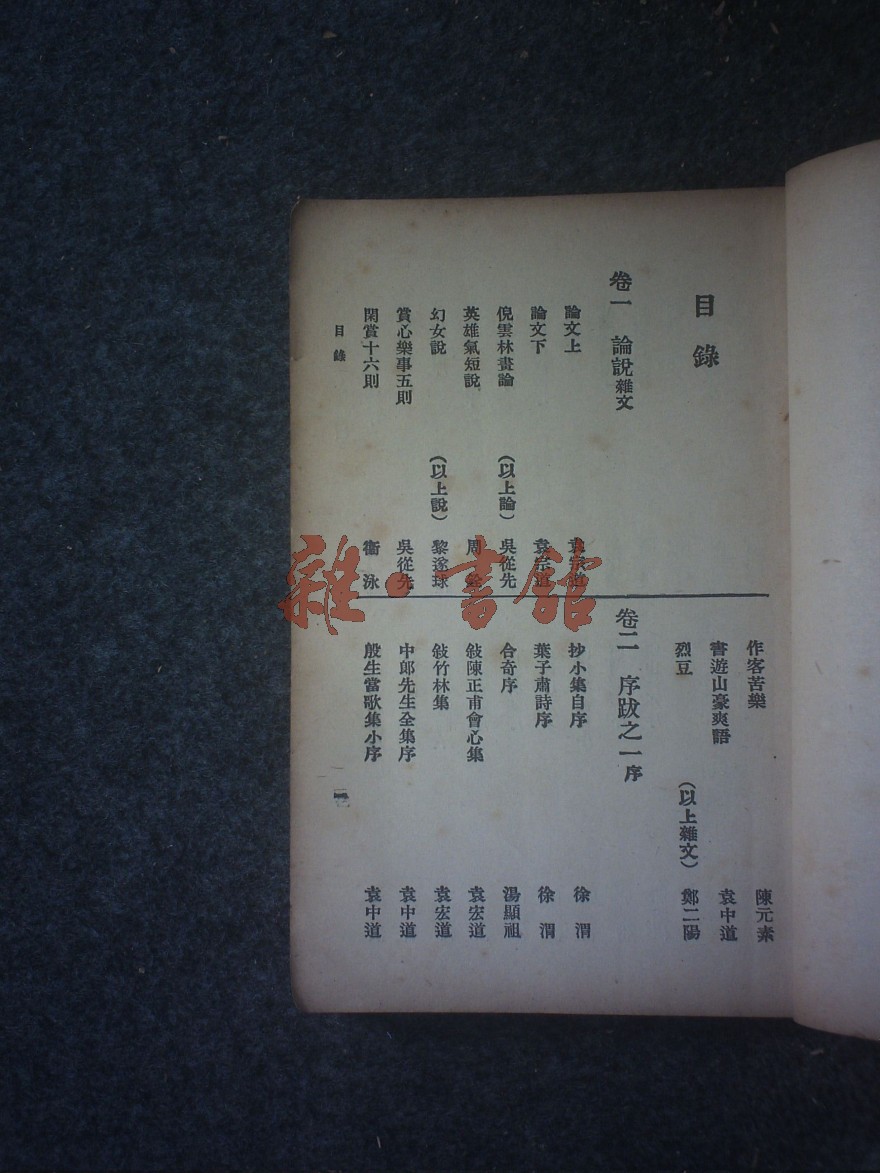 目錄
卷一 論說雜文
論文上 袁宗道
論文下 袁宗道
倪雲林畫論 （以上論）吳從先
英雄氣短說 周
幻女說 （以上說）黎遂球
賞心樂事五則 吳從先
閑賞十六則 衞泳
作客苦樂 陳元素
書遊山豪爽語 袁中道
烈豆 （以上雜文）鄭二陽
卷二 序跋之一序
抄小集自序 徐渭
葉子肅詩序 徐渭
合奇序 湯顯祖
敍陳正甫會心集 袁宏道
敍竹林集 袁宏道
中郎先生全集序 袁中道
殷生當歌集小序 袁中道
目錄 一
雜·書館